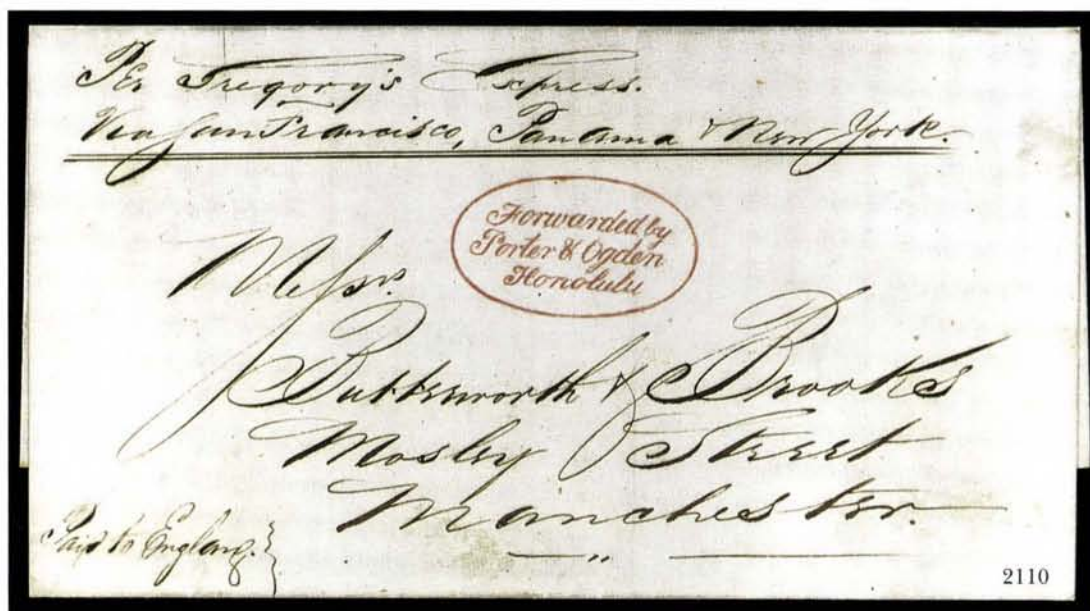 Per Gregory's Express.
Via San Francisco, Panama & New York.
Forwarded by
Porter & Ogden
Honolulu
Messrs.
Butterworth & Brooks
Mosley Street
Manchester.
Paid to England.
2110